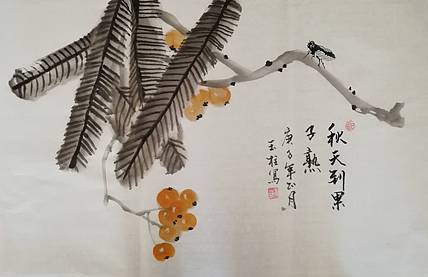 秋天到果
子熟
庚子年正月
玉柱写